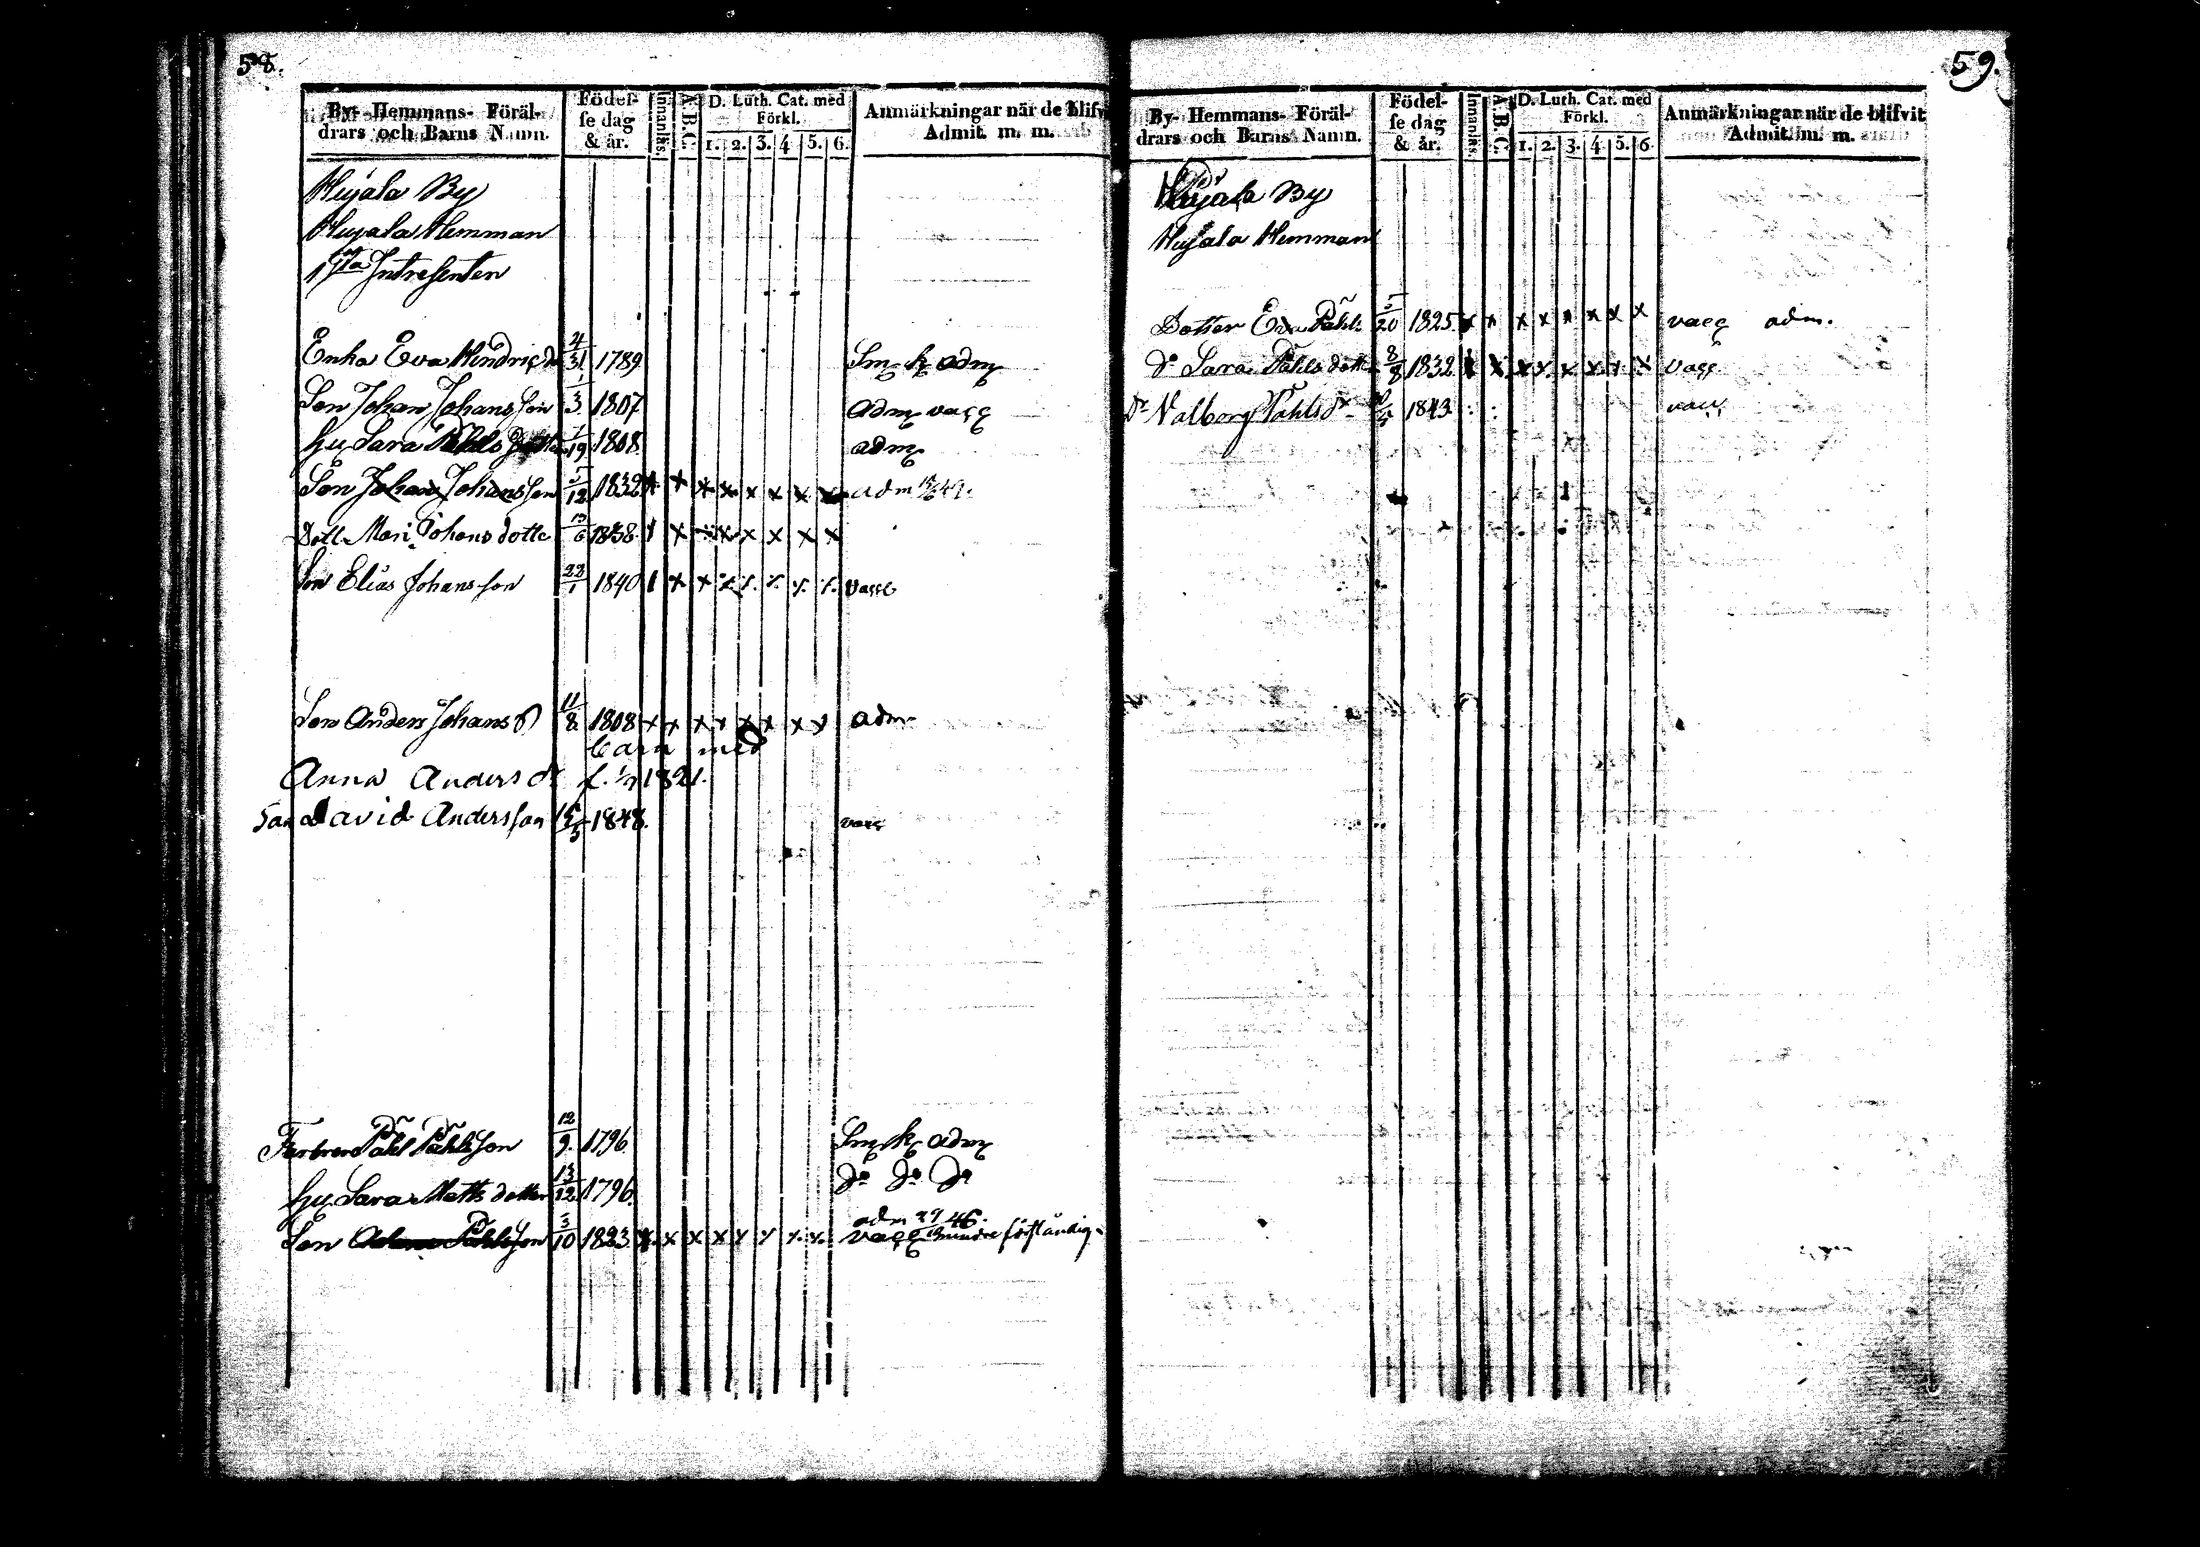 58.
By- Hemmans- Föräl-
drars och Barns Namn.
Födel-
se dag
& år.
Innanläs.
A.B.C.
D. Luth. Cat. med
Förkl.
1. 2. 3. 4 5. 6.
Anmärkningar när de blifv
Admit. m. m.
Hujala By
Hujala Hemman
1sta Intressenten
Enka Eva Hindrics 4/31 1789 Sm k adm
Son Johan Johansson 1/3 1807 adm vacc
hu Sara Påhls dotter 1/19 1808 adm
Son Johan Johansson 5/12 1832 x x x x x x x x adm 49.
Dott Mari Johans dotte 1838 x x x x x x x
Son Elias Johansson 23/1 1840 x x vacc
Son Anders Johans 11/8 1808 x x x x x x x x adm
barn med
Anna Anders dr f. 1821.
Son David Andersson 1848. vacc
Farbrorn Påhl Påhlsson 12/9. 1796 Sm k adm
hu Sara Matts dotter 13/12 1796 Do Do Do
adm 46.
Son Påhlsson 3/10 1823 x x x x vacc mindre förståndig
59.
By- Hemmans- Föräl-
drars och Barns Namn.
Födel-
se dag
& år.
Innanläs.
A.B.C.
D. Luth. Cat. med
Förkl.
1. 2. 3. 4. 5. 6
Anmärkningar när de blifvit
Admit. m. m.
Hujala By
Hujala Hemman
Dotter Eva Påhls 5/20 1825 x x x x x x x x vacc adm.
Do Sara Påhls dott 8/8 1832 x x x x x x vacc
Dr Valborg Påhls dr 1843 : : vacc